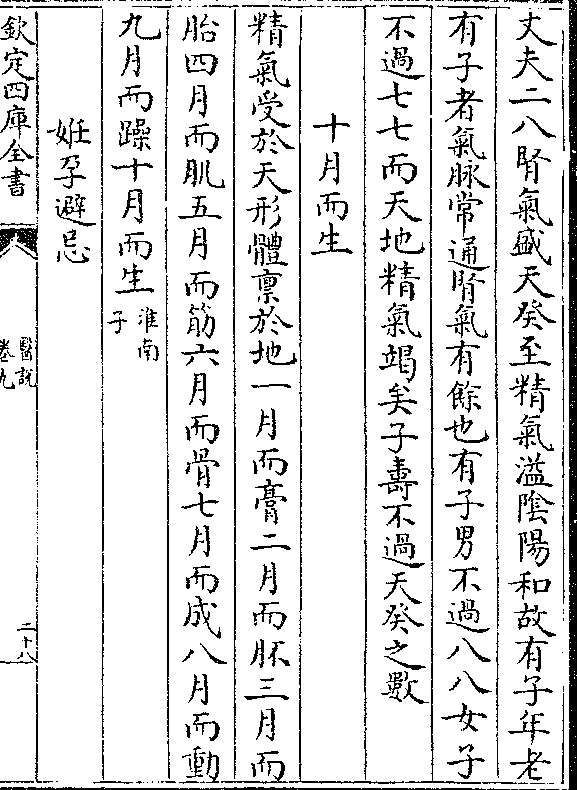 丈夫二八腎氣盛天癸至精氣溢陰陽和故有子年老
有子者氣脉常通腎氣有餘也有子男不過八八女子
不過七七而天地精氣竭矣子壽不過天癸之數
十月而生
精氣受於天形體禀於地一月而膏二月而胚三月而
胎四月而肌五月而筋六月而骨七月而成八月而動
九月而躁十月而生淮南
子
姙孕避忌
欽定四庫全書
醫說
卷九
二十八